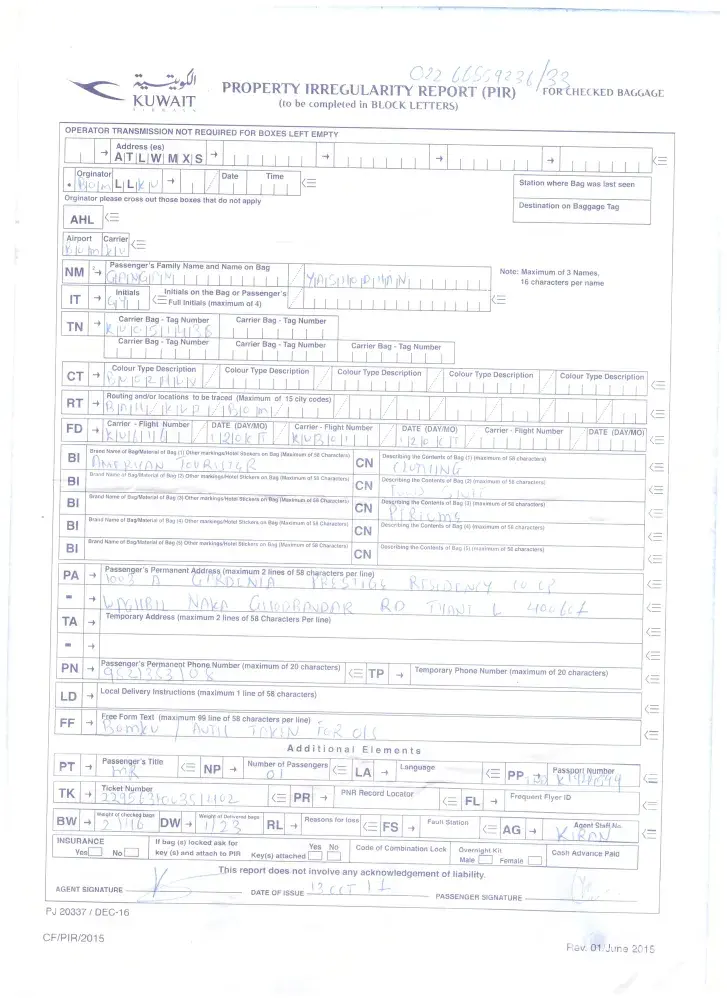 022 66559236/33
الكويتية
KUWAIT
AIRWAYS
PROPERTY IRREGULARITY REPORT (PIR) FOR CHECKED BAGGAGE
(to be completed in BLOCK LETTERS)
OPERATOR TRANSMISSION NOT REQUIRED FOR BOXES LEFT EMPTY
Address (es)
A T L W M X S
Orginator Date Time
B O M L L K U
Station where Bag was last seen
Orginator please cross out those boxes that do not apply
Destination on Baggage Tag
AHL
Airport Carrier
B O M K U
NM Passenger's Family Name and Name on Bag
YASHODHAN
Note: Maximum of 3 Names,
16 characters per name
IT Initials Initials on the Bag or Passenger's
Full Initials (maximum of 4)
TN Carrier Bag - Tag Number Carrier Bag - Tag Number
Carrier Bag - Tag Number Carrier Bag - Tag Number Carrier Bag - Tag Number
CT Colour Type Description Colour Type Description Colour Type Description Colour Type Description Colour Type Description
RT Routing and/or locations to be traced (Maximum of 15 city codes)
FD Carrier - Flight Number DATE (DAY/MO) Carrier - Flight Number DATE (DAY/MO) Carrier - Flight Number DATE (DAY/MO)
BI Brand Name of Bag/Material of Bag (1) Other markings/Hotel Stickers on Bag (Maximum of 58 Characters) CN Describing the Contents of Bag (1) (maximum of 58 characters)
AMERICAN TOURISTER CLOTHING
BI Brand Name of Bag/Material of Bag (2) Other markings/Hotel Stickers on Bag (Maximum of 58 Characters) CN Describing the Contents of Bag (2) (maximum of 58 characters)
BI Brand Name of Bag/Material of Bag (3) Other markings/Hotel Stickers on Bag (Maximum of 58 Characters) CN Describing the Contents of Bag (3) (maximum of 58 characters)
BI Brand Name of Bag/Material of Bag (4) Other markings/Hotel Stickers on Bag (Maximum of 58 Characters) CN Describing the Contents of Bag (4) (maximum of 58 characters)
BI Brand Name of Bag/Material of Bag (5) Other markings/Hotel Stickers on Bag (Maximum of 58 Characters) CN Describing the Contents of Bag (5) (maximum of 58 characters)
PA Passenger's Permanent Address (maximum 2 lines of 58 characters per line)
1003 A GARDENIA PRESTIGE RESIDENCY
NAKA RD
TA Temporary Address (maximum 2 lines of 58 Characters Per line)
PN Passenger's Permanent Phone Number (maximum of 20 characters) TP Temporary Phone Number (maximum of 20 characters)
LD Local Delivery Instructions (maximum 1 line of 58 characters)
FF Free Form Text (maximum 99 line of 58 characters per line)
BOMKU / TAKEN FOR
Additional Elements
PT Passenger's Title NP Number of Passengers LA Language PP Passport Number
MR 01
TK Ticket Number PR PNR Record Locator FL Frequent Flyer ID
BW Weight of checked bags DW Weight of Delivered bags RL Reasons for loss FS Fault Station AG Agent Staff No.
2/46 1/23 KIRAN
INSURANCE If bag (s) locked ask for Yes No Code of Combination Lock Overnight Kit Cash Advance Paid
Yes No key (s) and attach to PIR Key(s) attached Male Female
This report does not involve any acknowledgement of liability.
AGENT SIGNATURE DATE OF ISSUE PASSENGER SIGNATURE
PJ 20337 / DEC-16
CF/PIR/2015
Rev. 01/June 2015